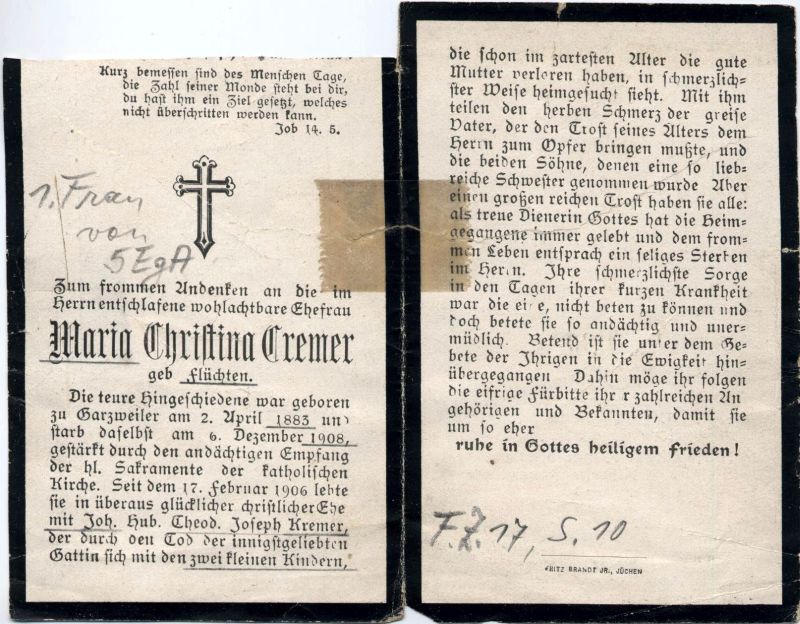 Kurz bemessen sind des Menschen Tage,
die Zahl seiner Monde steht bei dir,
du hast ihm ein Ziel gesetzt, welches
nicht überschritten werden kann.
Job 14. 5.
1. Frau
von
5EgA
Zum frommen Andenken an die im
Herrn entschlafene wohlachtbare Ehefrau
Maria Christina Cremer
geb Flüchten.
Die teure Hingeschiedene war geboren
zu Garzweiler am 2. April 1883 und
starb daselbst am 6. Dezember 1908,
gestärkt durch den andächtigen Empfang
der hl. Sakramente der katholischen
Kirche. Seit dem 17. Februar 1906 lebte
sie in überaus glücklicher christlicher Ehe
mit Joh. Hub. Theod. Joseph Kremer,
der durch den Tod der innigstgeliebten
Gattin sich mit den zwei kleinen Kindern,
die schon im zartesten Alter die gute
Mutter verloren haben, in schmerzlich-
ster Weise heimgesucht sieht. Mit ihm
teilen den herben Schmerz der greise
Vater, der den Trost seines Alters dem
Herrn zum Opfer bringen mußte, und
die beiden Söhne, denen eine so lieb-
reiche Schwester genommen wurde Aber
einen großen reichen Trost haben sie alle:
als treue Dienerin Gottes hat die Heim-
gegangene immer gelebt und dem from-
men Leben entsprach ein seliges Sterben
im Herrn. Ihre schmerzlichste Sorge
in den Tagen ihrer kurzen Krankheit
war die eine, nicht beten zu können und
doch betete sie so andächtig und uner-
müdlich. Betend ist sie unter dem Ge-
bete der Ihrigen in die Ewigkeit hin-
übergegangen Dahin möge ihr folgen
die eifrige Fürbitte ihrer zahlreichen An
gehörigen und Bekannten, damit sie
um so eher
ruhe in Gottes heiligem Frieden!
F.Z. 17, S. 10
FRITZ BRANDT JR., JÜCHEN